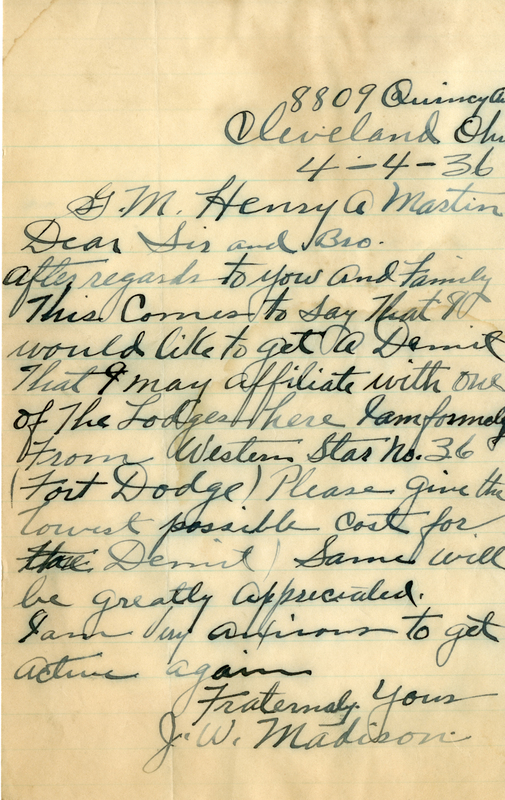 8809 Quincy Av
Cleveland Ohi
4-4-36
G.M. Henry A Martin
Dear Sir and Bro.
after regards to you and Family
This Comes to say That I
would like to get a Demit
That I may affiliate with one
of The Lodges here I am formely
From Western Star No. 36
(Fort Dodge) Please give the
lowest possible cost for
Demit) Same will
be greatly appreciated.
I am anxious to get
active again
Fraternaly Yours
J. W. Madison